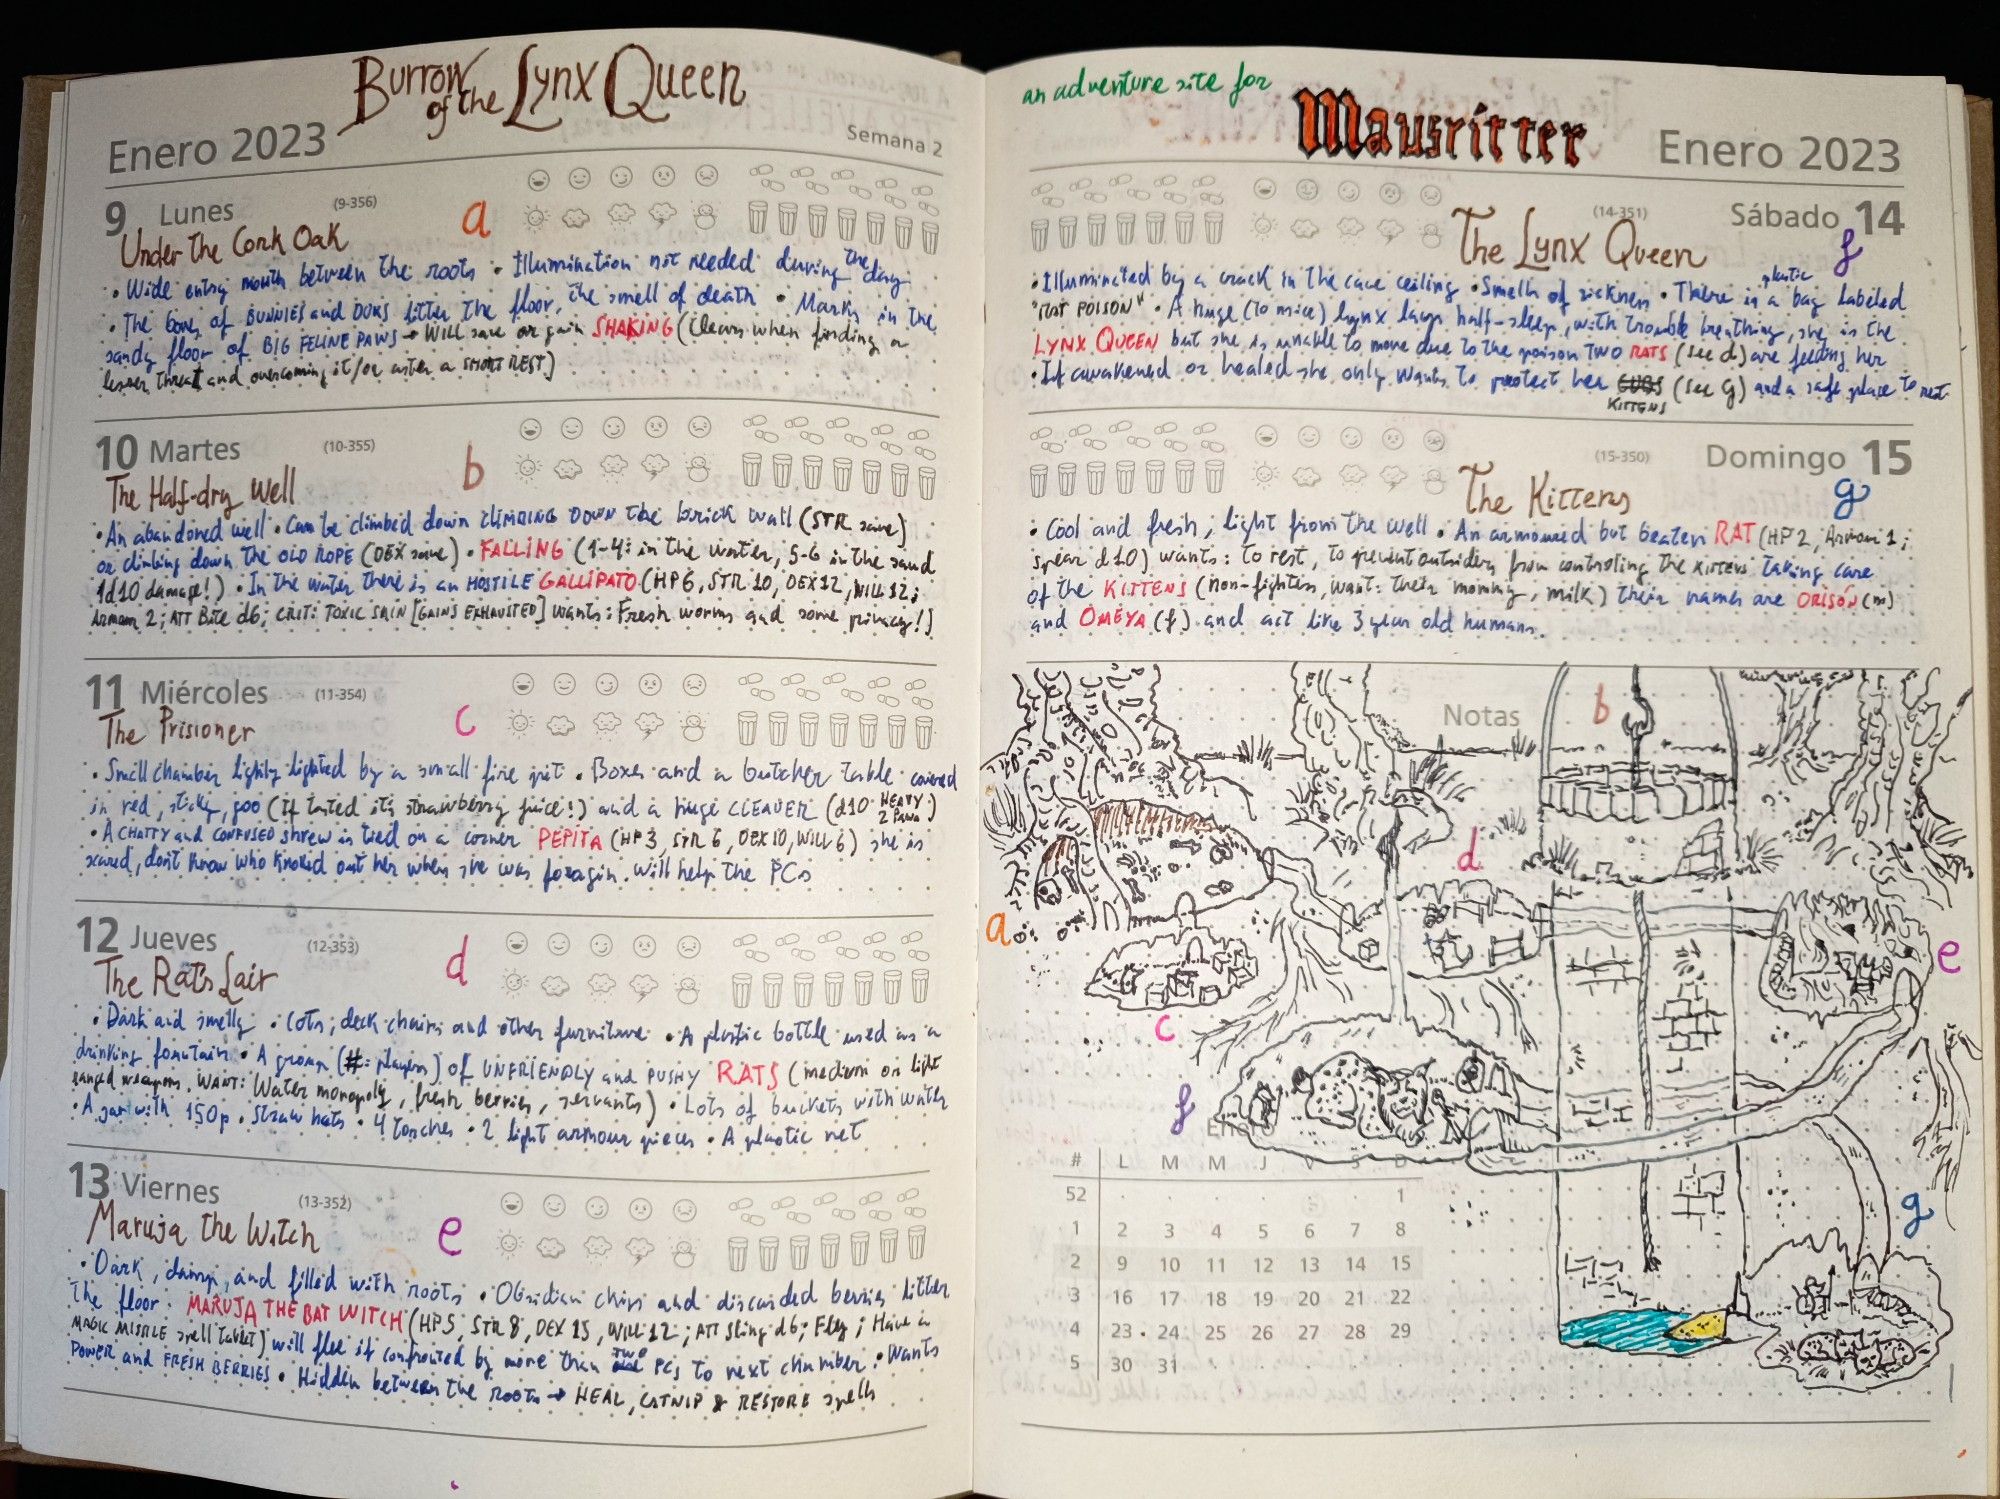 Burrow of the Lynx Queen
Enero 2023
Semana 2
9 Lunes
(9-356)
a
Under The Cork Oak
• Wide entry mouth between the roots • Illumination not needed during the day
• The bones of BUNNIES and DUKS litter the floor, the smell of death • Marks in the
sandy floor of BIG FELINE PAWS → WILL save or gain SHAKING (Clears when finding a
lesser threat and overcoming it/or after a SHORT REST)
10 Martes
(10-355)
b
The Half-dry Well
• An abandoned well • Can be climbed down CLIMBING DOWN the brick wall (STR save)
or climbing down the OLD ROPE (DEX save) • FALLING (1-4: in the water, 5-6 in the sand
1d10 damage!) • In the water there is an HOSTILE GALLIPATO (HP6, STR 10, DEX12, WILL 12;
Armour 2; ATT Bite d6; CRIT: TOXIC SKIN [GAINS EXHAUSTED] wants: Fresh worms and some privacy!)
11 Miércoles
(11-354)
c
The Prisioner
• Small chamber lightly lighted by a small fire pit • Boxes and a butcher table covered
in red, sticky, goo (If tasted its strawberry juice!) and a huge CLEAVER (d10 HEAVY 2 PAWS)
• A CHATTY and CONFUSED shrew is tied on a corner PEPITA (HP3, STR 6, DEX10, WILL 6) she is
scared, don't know who knoked out her when she was foragin. Will help the PCs
12 Jueves
(12-353)
d
The Rats Lair
• Dark and smelly • Cots, deck chairs and other furniture • A plastic bottle used as a
drinking fountain • A group (#: players) of UNFRIENDLY and PUSHY RATS (medium or light
ranged weapons. WANT: Water monopoly, fresh berries, servants) • Lots of buckets with water
• A jar with 150p • Straw hats • 4 torches • 2 light armour pieces • A plastic net
13 Viernes
(13-352)
e
Maruja the Witch
• Dark, damp, and filled with roots • Obsidian chips and discarded berries litter
the floor • MARUJA THE BAT WITCH (HP5, STR 8, DEX 15, WILL 12; ATT Sling d6; Fly; Have a
MAGIC MISSILE spell tablet) will flee if confronted by more than TWO PCs to next chamber • Wants
POWER and FRESH BERRIES • Hidden between the roots → HEAL, CATNIP & RESTORE spells
an adventure site for
Mausritter
Enero 2023
(14-351)
Sábado 14
The Lynx Queen
f
• Illuminated by a crack in the cave ceiling • Smells of sickness • There is a plastic bag labeled
"RAT POISON" • A huge (to mice) lynx lays half-sleep, with trouble breathing, she is the
LYNX QUEEN but she is unable to move due to the poison TWO RATS (see d) are feeding her
• If awakened or healed she only wants to protect her KITTENS (see g) and a safe place to rest
(15-350)
Domingo 15
The Kittens
g
• Cool and fresh, light from the well • An armoured but beaten RAT (HP 2, Armour 1;
spear d10) wants: to rest, to prevent outsiders from controling the KITTENS taking care
of the KITTENS (non-fighters, want: their mommy, milk) their names are ORISÓN (m)
and OMEYA (f) and act like 3 year old humans.
Notas
b
d
a
e
c
f
g
Enero
# L M M J V S D
52 1
1 2 3 4 5 6 7 8
2 9 10 11 12 13 14 15
3 16 17 18 19 20 21 22
4 23 24 25 26 27 28 29
5 30 31